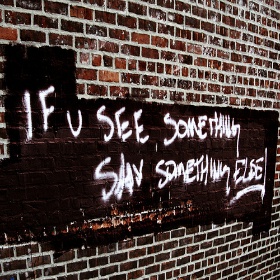 IF U SEE SOMETHING
SAY SOMETHING ELSE!